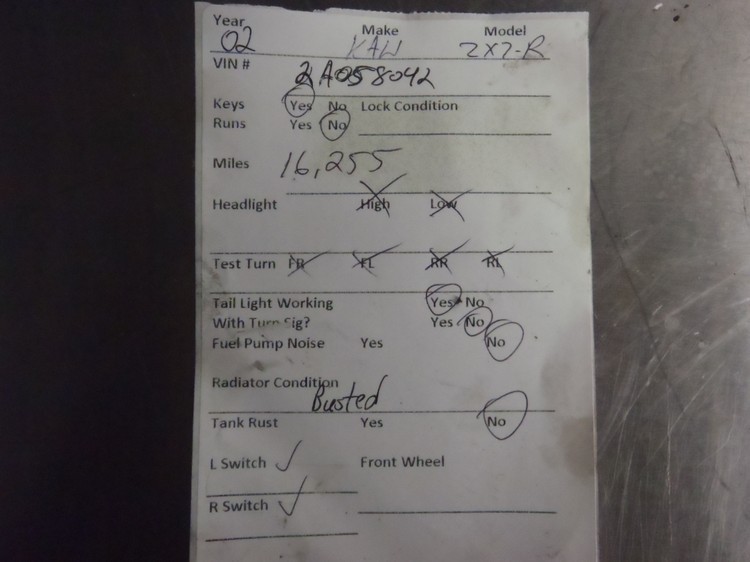 Year Make Model
02 KAW ZX7-R
VIN #
2A058042
Keys Yes No Lock Condition
Runs Yes No
Miles 16,255
Headlight High Low
Test Turn FR FL RR RL
Tail Light Working Yes No
With Turn Sig? Yes No
Fuel Pump Noise Yes No
Radiator Condition
Busted
Tank Rust Yes No
L Switch ✓ Front Wheel
R Switch ✓